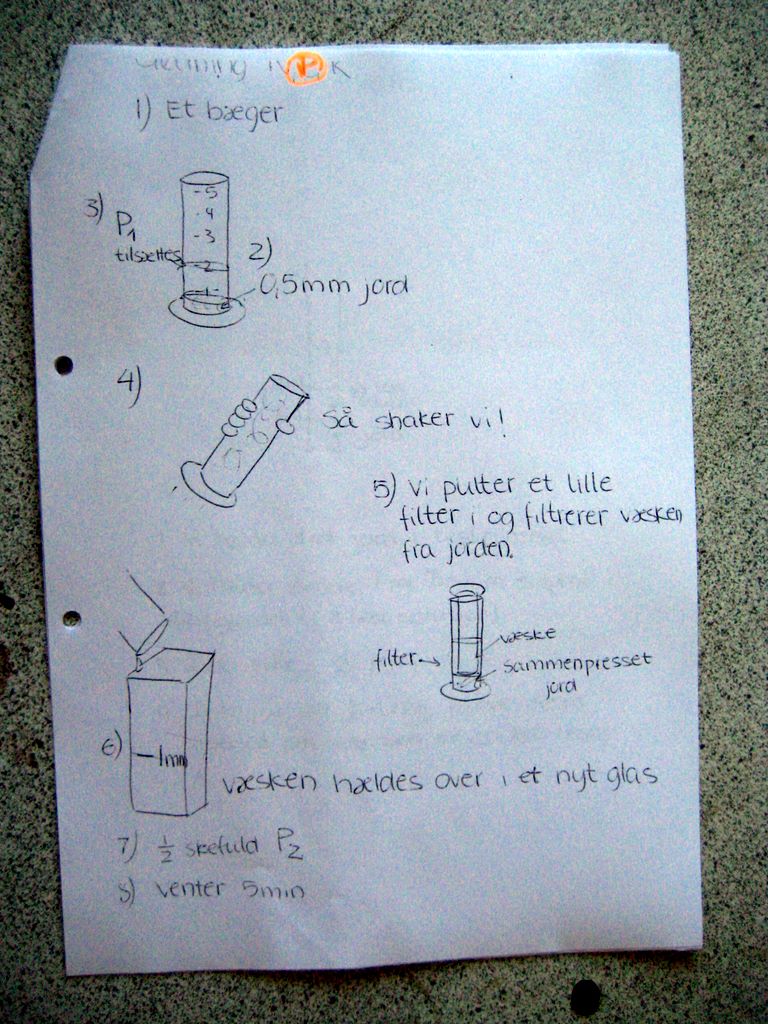 P K
1) Et bæger
- 5
- 4
- 3
- 2
- 1 -
3) P1
tilsættes
2)
0,5mm jord
4)
Så shaker vi!
5) Vi putter et lille
filter i og filtrerer væsken
fra jorden.
væske
filter →
sammenpresset
jord
6)
- 1mm
væsken hældes over i et nyt glas
7) ½ skefuld P2
8) venter 5min